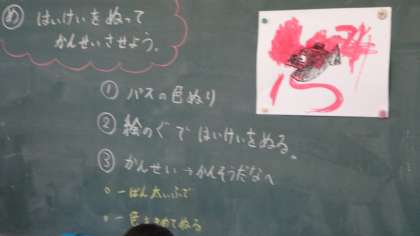 め はいけいをぬって
かんせいさせよう。
① パスの色ぬり
② 絵のぐではいけいをぬる。
③ かんせい→かんそうだなへ
○ 一ばん太いふで
○ 一色きめてぬる